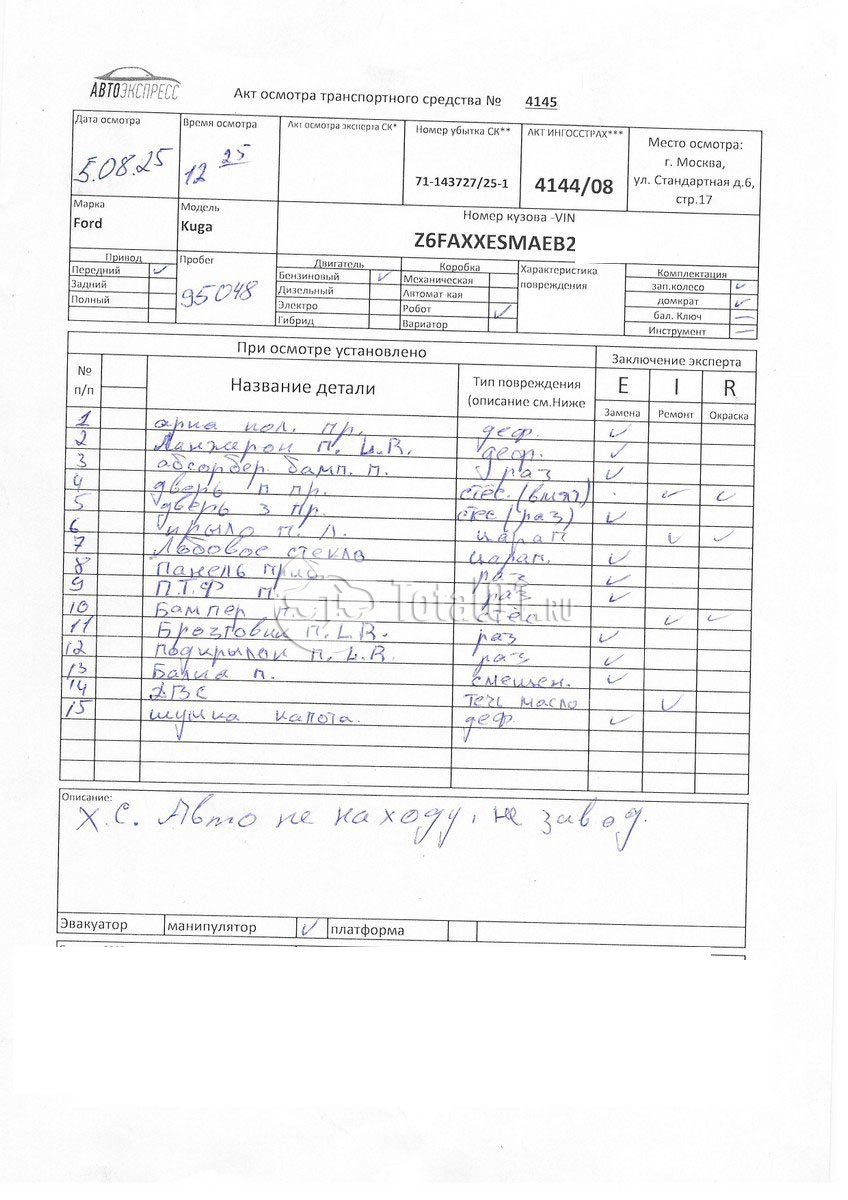 АВТОЭКСПРЕСС
Акт осмотра транспортного средства № 4145
Дата осмотра
5.08.25
Время осмотра
12 25
Акт осмотра эксперта СК*
Номер убытка СК**
71-143727/25-1
АКТ ИНГОССТРАХ***
4144/08
Место осмотра:
г. Москва,
ул. Стандартная д.6,
стр.17
Марка
Ford
Модель
Kuga
Номер кузова -VIN
Z6FAXXESMAEB2
Привод
Передний ✓
Задний
Полный
Пробег
95048
Двигатель
Бензиновый ✓
Дизельный
Электро
Гибрид
Коробка
Механическая
Автомат кая
Робот ✓
Вариатор
Характеристика
повреждения
Комплектация
зап.колесо ✓
домкрат ✓
бал. Ключ —
Инструмент —
При осмотре установлено
Заключение эксперта
№
п/п
Название детали
Тип повреждения
(описание см.Ниже
E I R
Замена Ремонт Окраска
1 арка кол. пр. деф. ✓
2 Лонжерон п. L.R. деф. ✓
3 абсорбер. бамп. п. раз ✓
4 дверь п пр. стёс. (вмят) ✓ ✓
5 дверь з пр. стес (раз) ✓
6 крыло п. л. царап ✓ ✓
7 Лобовое стекло царап. ✓
8 Панель приб. раз ✓
9 П.Т.Ф п. раз ✓
10 Бампер п. стёс ✓ ✓
11 Брозговик п. L.R. раз ✓
12 подкрылок п. L.R. раз ✓
13 Балка п. смещен. ✓
14 ДВС течь масло ✓
15 шумка капота. деф. ✓
TotalDTP.RU
Описание:
Х.С. Авто не находу, не завод.
Эвакуатор манипулятор ✓ платформа